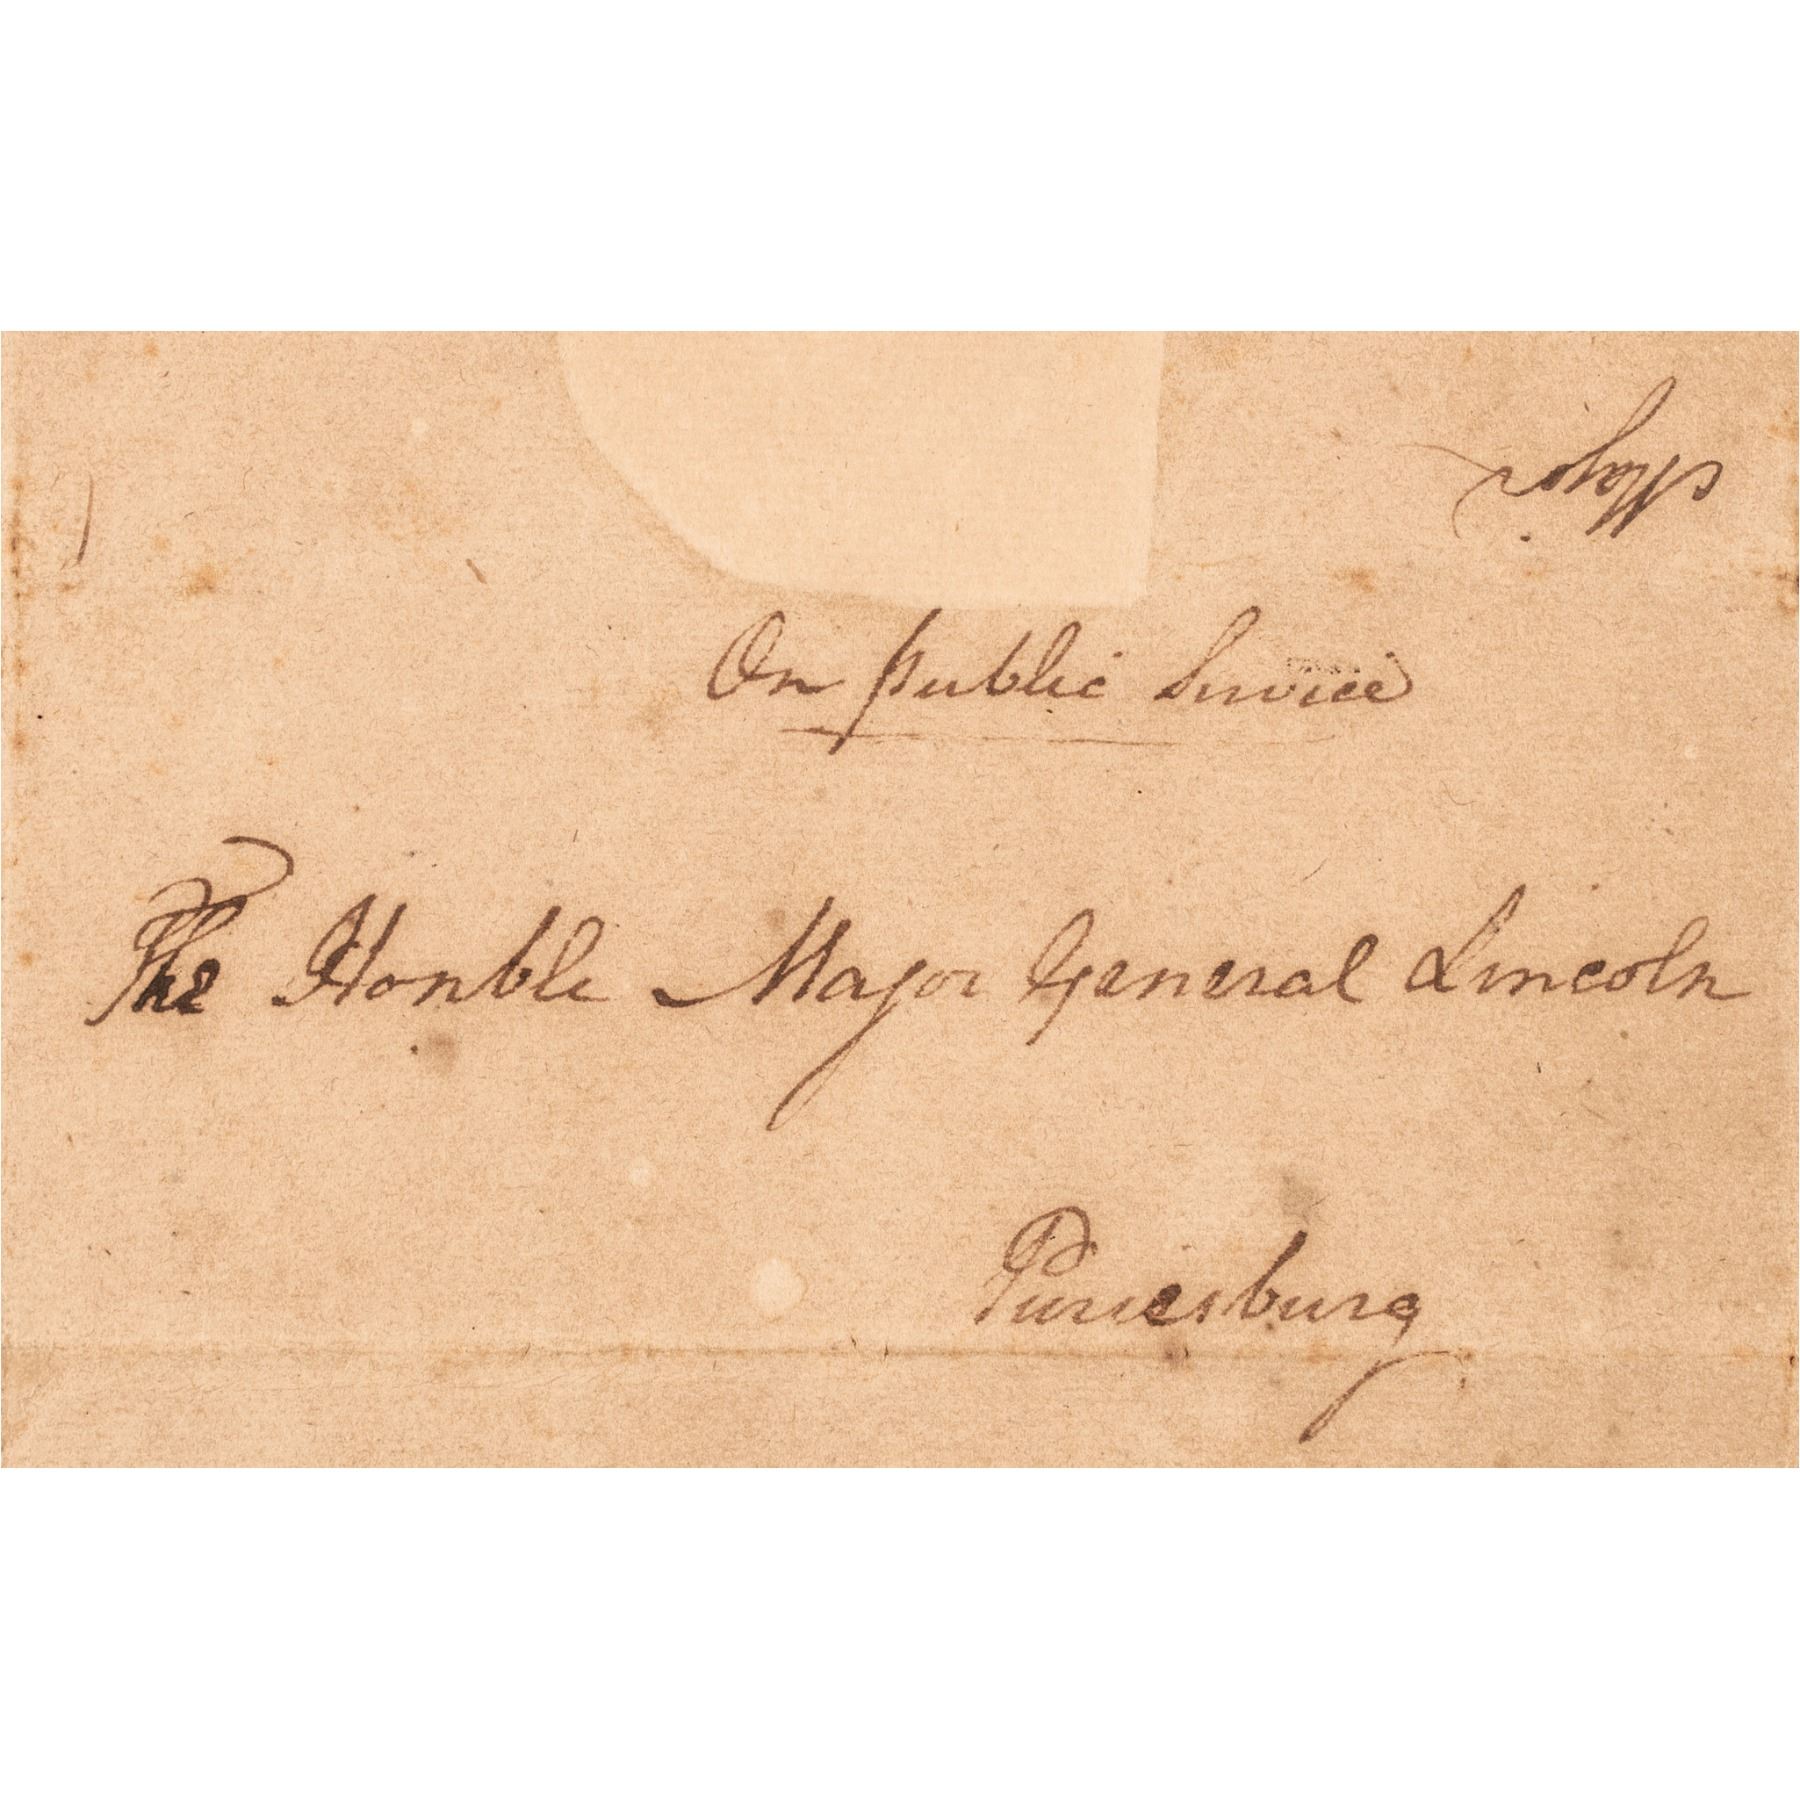 Major
On public Service
The Honble Major General Lincoln
Puriesburg